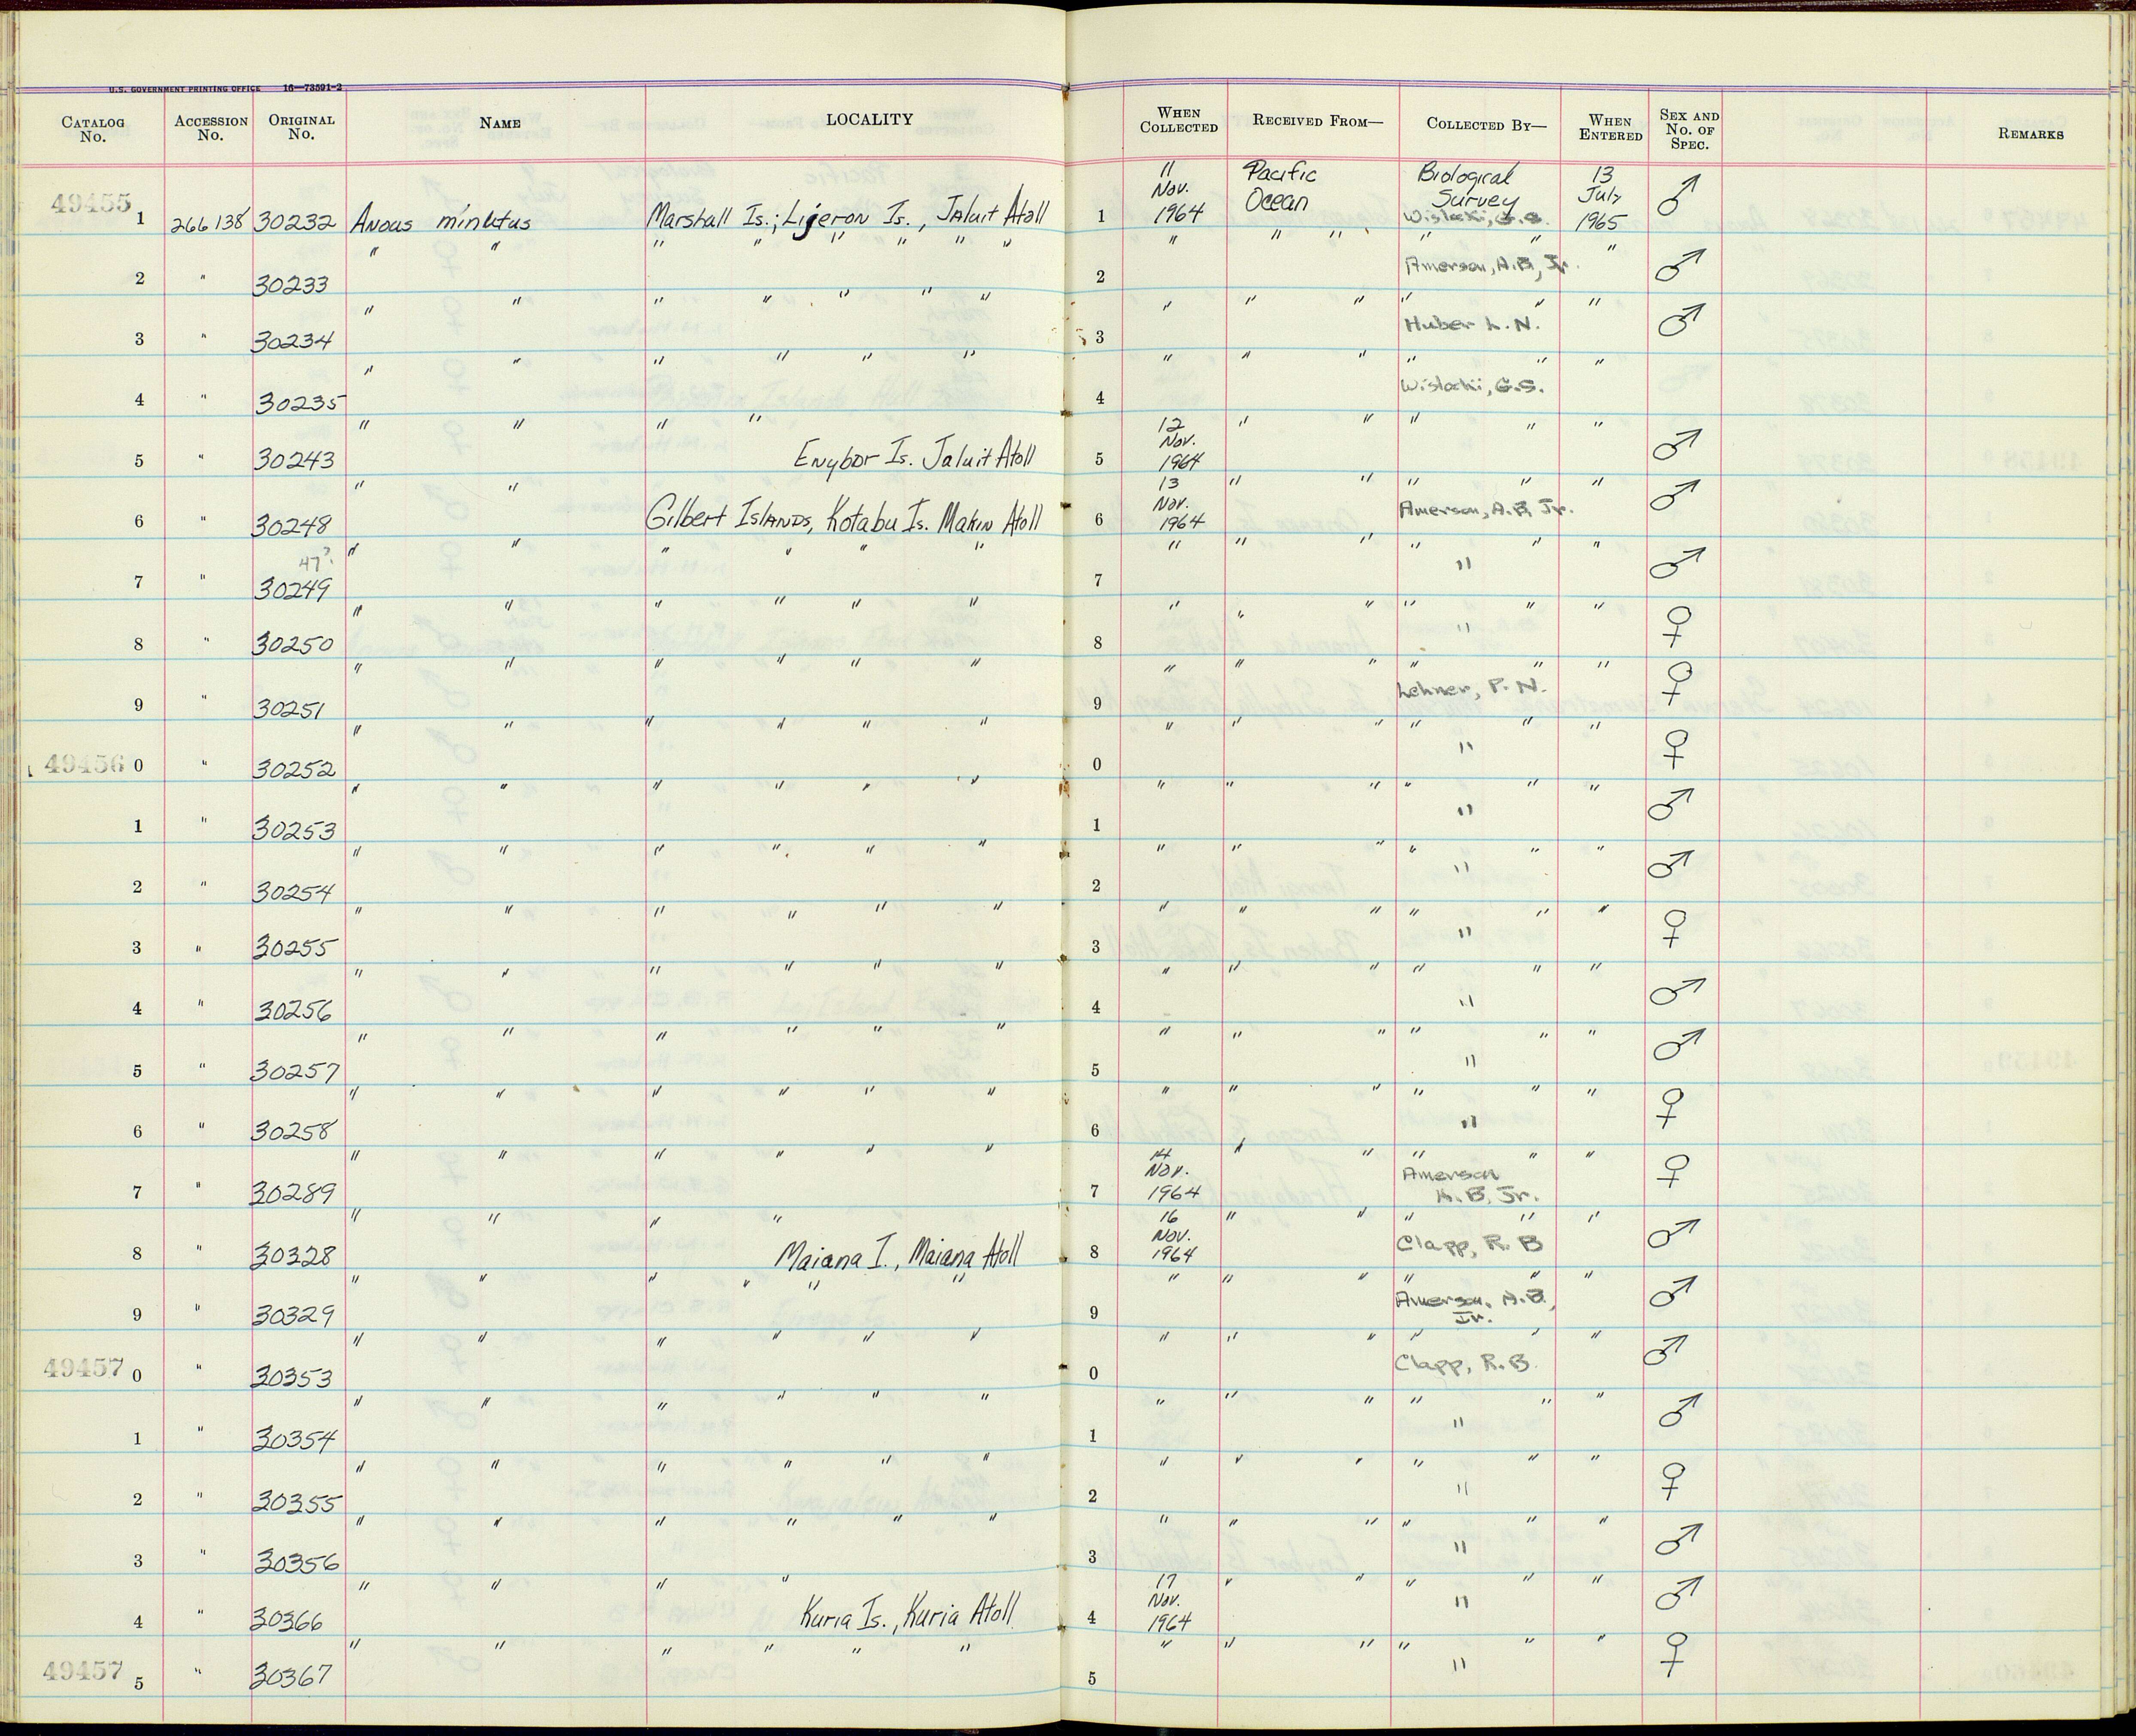 U.S. GOVERNMENT PRINTING OFFICE 16—73591-2
CATALOG No. ACCESSION No. ORIGINAL No. NAME LOCALITY WHEN COLLECTED RECEIVED FROM— COLLECTED BY— WHEN ENTERED SEX AND No. OF SPEC. REMARKS
49455 1 266138 30232 Anous minutus Marshall Is.; Lijeron Is., Jaluit Atoll 1 11 Nov. 1964 Pacific Ocean Biological Survey Wislocki, G.S. 13 July 1965 ♂
2 " 30233 " " " " " " " " 2 " " " " " Amerson, A.B, Jr. " ♂
3 " 30234 " " " " " " " 3 " " " " " Huber L.N. " ♂
4 " 30235 " " " " " " 4 " " " " " Wislocki, G.S. "
5 " 30243 " " " " Enybor Is. Jaluit Atoll 5 12 Nov. 1964 " " " " " ♂
6 " 30248 " " Gilbert Islands, Kotabu Is. Makin Atoll 6 13 Nov. 1964 " " " " Amerson, A.B, Jr. " ♂
47?
7 " 30249 " " " " " " 7 " " " " " " " ♂
8 " 30250 " " " " " " 8 " " " " " " " ♀
9 " 30251 " " " " " " 9 " " " " " Lehner, P.N. " ♀
49456 0 " 30252 " " " " " " 0 " " " " " " " ♀
1 " 30253 " " " " " " 1 " " " " " " " ♂
2 " 30254 " " " " " " 2 " " " " " " " ♂
3 " 30255 " " " " " " 3 " " " " " " " ♀
4 " 30256 " " " " " " 4 " " " " " " " ♂
5 " 30257 " " " " " " 5 " " " " " " " ♂
6 " 30258 " " " " " " 6 " " " " " " " ♀
7 " 30289 " " " " " " 7 14 Nov. 1964 " " " " Amerson A.B, Jr. " ♀
8 " 30328 " " " " Maiana I., Maiana Atoll 8 16 Nov. 1964 " " " " Clapp, R.B " ♂
9 " 30329 " " " " " " 9 " " " " " Amerson, A.B, Jr. " ♂
49457 0 " 30353 " " " " " " 0 " " " " " Clapp, R.B. " ♂
1 " 30354 " " " " " " 1 " " " " " " " ♂
2 " 30355 " " " " " " 2 " " " " " " " ♀
3 " 30356 " " " " " " 3 " " " " " " " ♂
4 " 30366 " " " " Kuria Is., Kuria Atoll 4 17 Nov. 1964 " " " " " " ♂
49457 5 " 30367 " " " " " " 5 " " " " " " " ♀